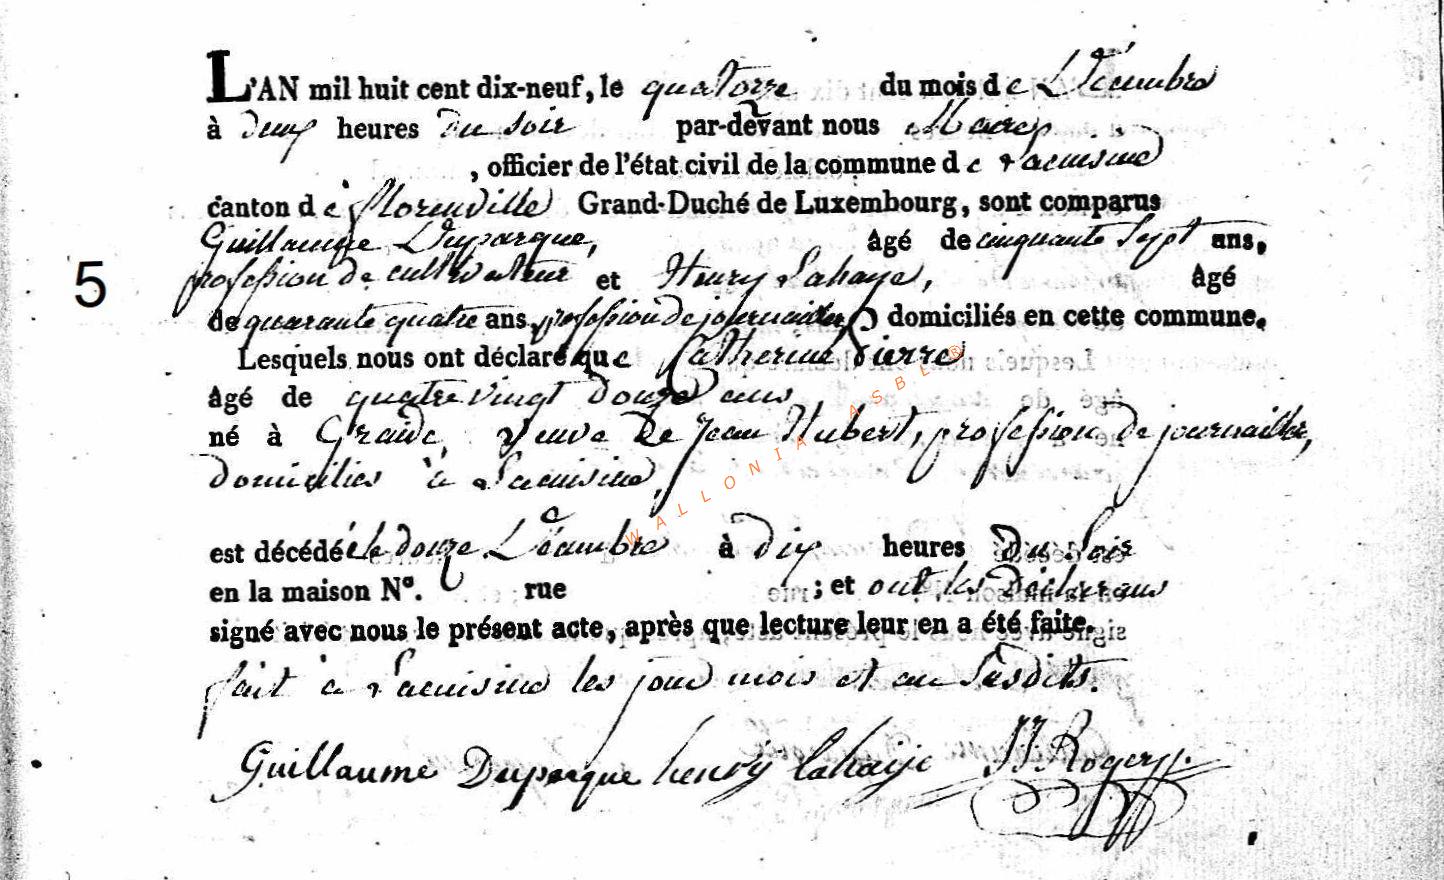 L'AN mil huit cent dix-neuf, le quatorze du mois de Décembre
à deux heures du soir par-devant nous Maire
, officier de l'état civil de la commune de Lacuisine
canton de Florenville Grand-Duché de Luxembourg, sont comparus
Guillaume Duparque, âgé de cinquante sept ans,
profession de cultivateur et Henry Lahaye, âgé
5
de quarante quatre ans, profession de journailier domiciliés en cette commune.
Lesquels nous ont déclaré que Catherine Pierre
âgé de quatre vingt douze ans
né à veuve de Jean Hubert, profession de journailier,
domiciliés à Lacuisine,
est décédé le douze Décembre à dix heures du soir
en la maison N°. rue ; et ont les déclarans
signé avec nous le présent acte, après que lecture leur en a été faite.
fait à Lacuisine les jour mois et an susdits.
Guillaume Duparque henry lahaije JJ Roger
WALLONIA ASBL ®